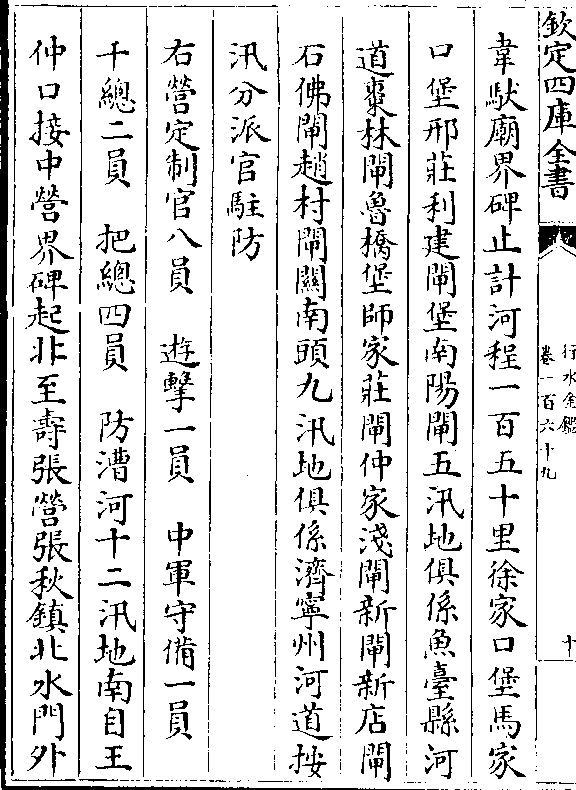 欽定四庫全書
行水金鑑
卷一百六十九
十
韋馱廟界碑止計河程一百五十里徐家口堡馬家
口堡邢莊利建閘堡南陽閘五汛地俱係魚臺縣河
道棗林閘魯橋堡師家莊閘仲家淺閘新閘新店閘
石佛閘趙村閘關南頭九汛地俱係濟寧州河道按
汛分派官駐防
右營定制官八員 遊擊一員 中軍守備一員
千總二員 把總四員 防漕河十二汛地南自王
仲口接中營界碑起北至壽張營張秋鎮北水門外